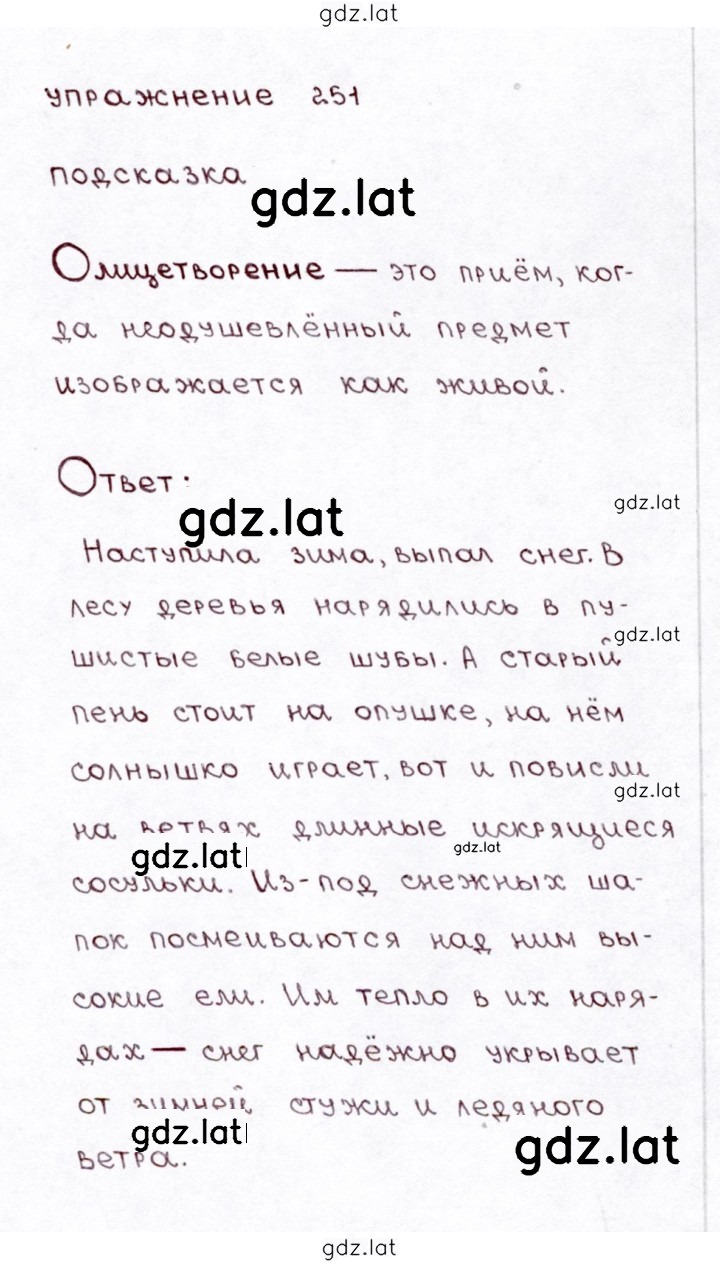 gdz.lat
упражнение 251
подсказка
gdz.lat
Олицетворение — это приём, ког-
да неодушевлённый предмет
изображается как живой.
Ответ:
gdz.lat
gdz.lat
Наступила зима, выпал снег. В
лесу деревья нарядились в пу-
gdz.lat
шистые белые шубы. А старый
пень стоит на опушке, на нём
солнышко играет, вот и повисли
gdz.lat
на ветвях длинные искрящиеся
gdz.lat
gdz.lat
сосульки. Из-под снежных ша-
пок посмеиваются над ним вы-
сокие ели. Им тепло в их наря-
дах — снег надёжно укрывает
от зимней стужи и ледяного
gdz.lat
gdz.lat
ветра.
gdz.lat